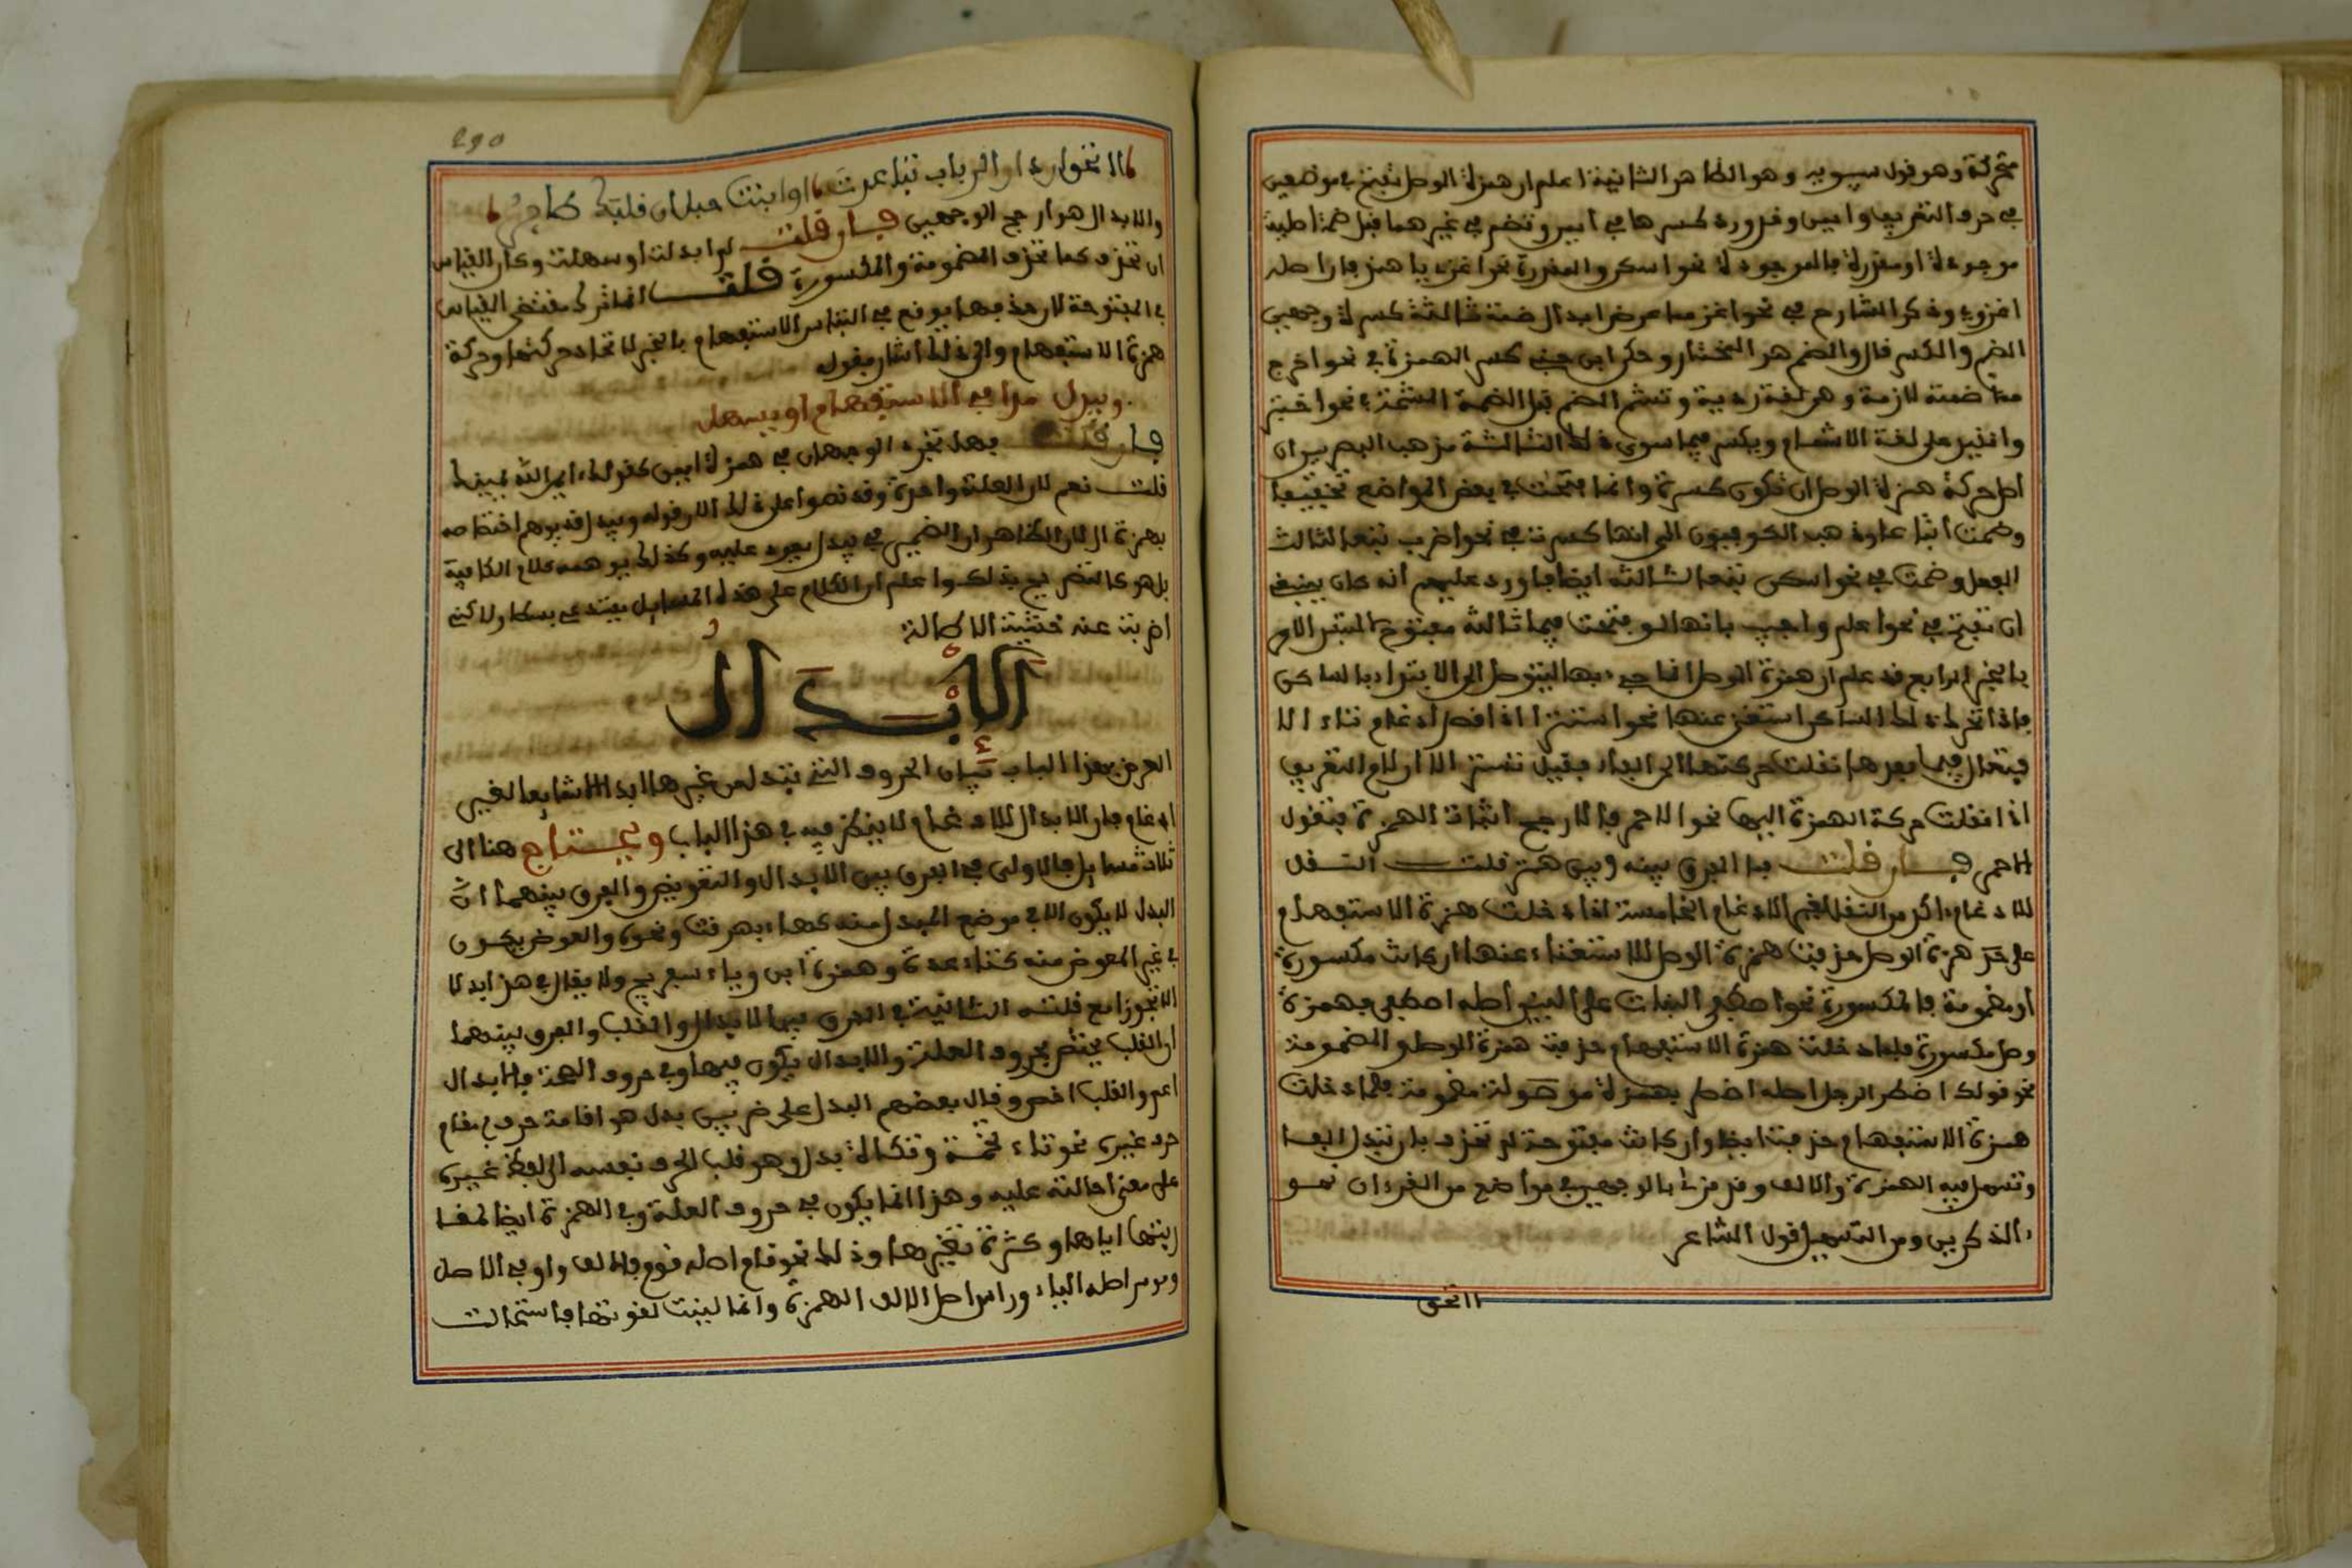 متحركة وهو قول سيبويه وهو الظاهر الثانية اعلم ان همزة الوصل تفتح في موضعين
في حرف التعريف وايمن وقد ورد كسرها في ايمن وتضم في غيرهما قبل ضمة اصلية
موجودة او مقدرة فالموجودة نحو اسكن والمقدرة نحو اغزي يا هند فان اصله
اغزوي وذكر الشارح في نحو اغزي مما عرض ابدال ضمته ثالثه كسرة وجهين
الضم والكسر قال والضم هو المختار وحكى ابن جني كسر الهمزة في نحو اخرج
مما ضمته لازمة وهي لغة ردية وتشم الضم قبل الضمة المشمة في نحو اختير
وانقيد على لغة الاشمام ويكسر فيما سوى ذلك الثالثة مذهب البصريين ان
اصل حركة همزة الوصل ان تكون كسرة وانما فتحت في بعض المواضع تخفيفا
وضمت اتباعا وذهب الكوفيون الى انها كسرت في نحو اضرب تبعا لثالث
الفعل وضمت في نحو اسكن تبعا لثالثه ايضا واورد عليهم انه كان ينبغي
ان تفتح في نحو اعلم واجيب بانها لو فتحت فيما ثالثه مفتوح لالتبس الامر
بالخبر الرابع قد علم ان همزة الوصل انما جيء بها ليتوصل الى الابتداء بالساكن
فاذا تحرك ذلك الساكن استغني عنها نحو استتر اذا قصد ادغام تاء الا
فتعال فيما بعدها نقلت حركتها الى الفاء فقيل ستر الا ان لام التعريف
اذا نقلت حركة الهمزة اليها نحو الاحمر فالارجح اثبات الهمزة فتقول
الحمر فان قلت ما الفرق بينه وبين ستر قلت النقل
للادغام اكثر من النقل لغير الادغام الخامسة اذا دخلت همزة الاستفهام
على همزة الوصل حذفت همزة الوصل للاستغناء عنها ان كانت مكسورة
او مضمومة فالمكسورة نحو اصطفى البنات على البنين اصله اصطفى بهمزة
وصل مكسورة فلما دخلت همزة الاستفهام حذفت همزة الوصل والمضمومة
نحو قولك اضطر الرجل اصله اضطر بهمزة موصولة مضمومة فلما دخلت
همزة الاستفهام حذفت ايضا وان كانت مفتوحة لم تحذف بل تبدل الفا
وتسهل فيه الهمزة والالف وقد قرئ بالوجهين في مواضع من القرءان نحو
ءالذكرين ومن التسهيل قول الشاعر
االحق
االحق ان دار الرباب تباعدت او انبت حبل ان قلبك طائر
والابدال هو ارجح الوجهين فان قلت لم ابدلت او سهلت وكان القياس
ان تحذف كما تحذف المضمومة والمكسورة قلت انما ترك مقتضى القياس
في المفتوحة لان حذفها يوقع في التباس الاستفهام بالخبر لاتحاد حركتها وحركة
همزة الاستفهام والى ذلك اشار بقوله
ويبدل مدا في الاستفهام او يسهل
فان قلت فهل تجري الوجهان في همزة ايمن كقولك ءايمن الله يمينك
قلت نعم لان العلة واحدة وقد نصوا على ذلك الا ان قوله ويبدل قد يوهم اختصاصه
بهمزة ال لان الظاهر ان الضمير في يبدل يعود عليه وكذلك يوهمه كلام الكافية
بل هو كالتصريح بذلك واعلم ان الكلام على هذه المسايل يستدعي بسطا ولاكني
اضربت عنه خشية الاطالة
الإبدال
الغرض بهذا الباب بيان الحروف التي تبدل من غيرها ابدالا شايعا لغير
ادغام فان الابدال للادغام لا ينظر فيه في هذا الباب ويحتاج هنا الى
ثلاث مسايل الاولى في الفرق بين الابدال والتعويض والفرق بينهما ان
البدل لا يكون الا في موضع المبدل منه كهاء هرقت ونحوه والعوض يكون
في غير المعوض منه كتاء عدة وهمزة ابن وياء سفيريج ولا يقال في هذا بدل
الا تجوزا مع قلته الثانية في الفرق بين الابدال والقلب والفرق بينهما
ان القلب يختص بحروف العلة والابدال يكون فيها وفي حروف الصحة فالابدال
اعم والقلب اخص وقال بعضهم البدل على ضربين بدل هو اقامة حرف مقام
حرف غيره نحو تاء تخمة وتكاة وبدل هو قلب الحرف نفسه الى لفظ غيره
على معنى احالته عليه وهذا انما يكون في حروف العلة وفي الهمزة ايضا لمقا
ربتها اياها وكثرة تغيرها وذلك نحو قام اصله قوم فالالف واو في الاصل
وموسر اصله الياء وراس اصل الالف الهمزة وانما لينت لقوتها فاستحالت